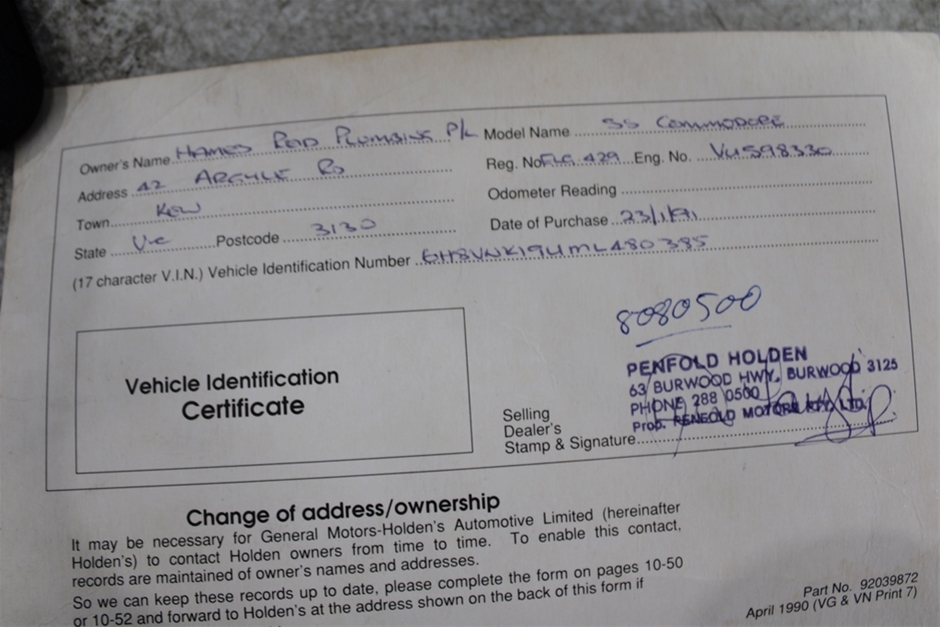 Owner's Name HAMES ROD PLUMBING P/L Model Name SS COMMODORE
Address 42 ARGYLE RD Reg. No. FLG 429 Eng. No. VU598330
Town KEW Odometer Reading
State Vic Postcode 3130 Date of Purchase 23/1/91
(17 character V.I.N.) Vehicle Identification Number 6H8VNK19UML480385
8080500
Vehicle Identification
Certificate
PENFOLD HOLDEN
63 BURWOOD HWY, BURWOOD 3125
PHONE 288 0500
Prop. PENFOLD MOTORS PTY. LTD.
Selling
Dealer's
Stamp & Signature
Change of address/ownership
It may be necessary for General Motors-Holden's Automotive Limited (hereinafter
Holden's) to contact Holden owners from time to time. To enable this contact,
records are maintained of owner's names and addresses.
So we can keep these records up to date, please complete the form on pages 10-50
or 10-52 and forward to Holden's at the address shown on the back of this form if
Part No. 92039872
April 1990 (VG & VN Print 7)